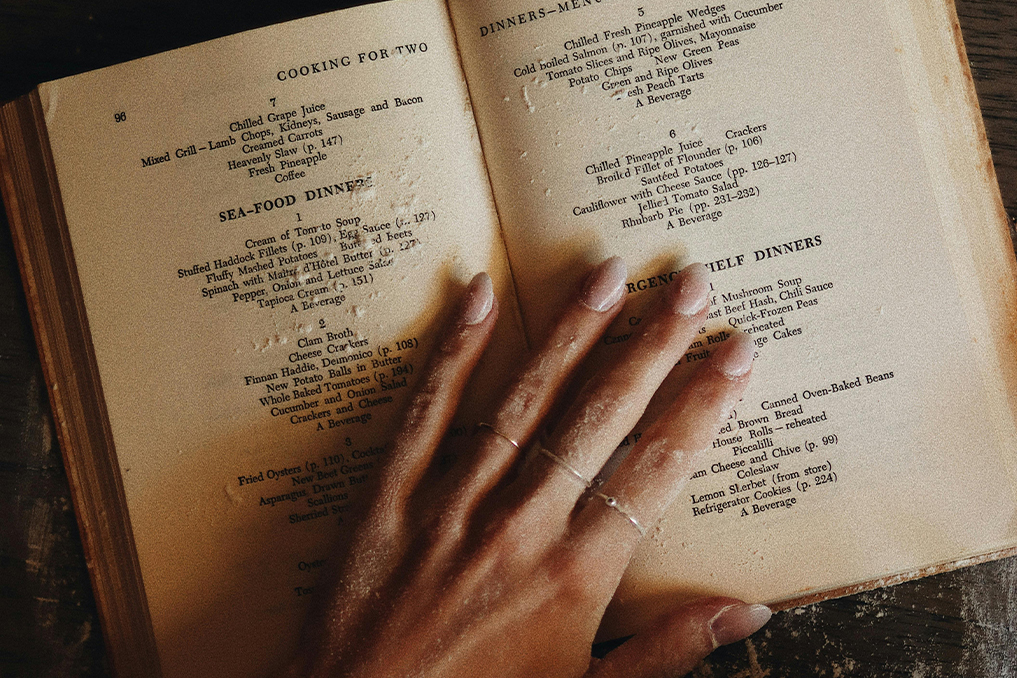 COOKING FOR TWO
96
7
Chilled Grape Juice
Mixed Grill—Lamb Chops, Kidneys, Sausage and Bacon
Creamed Carrots
Heavenly Slaw (p. 147)
Fresh Pineapple
Coffee
SEA-FOOD DINNERS
1
Cream of Tomato Soup
Stuffed Haddock Fillets (p. 109), Egg Sauce (p. 127)
Fluffy Mashed Potatoes Buttered Beets
Spinach with Maître d'Hôtel Butter (p. 127)
Pepper, Onion and Lettuce Salad
Tapioca Cream (p. 151)
A Beverage
2
Clam Broth
Cheese Crackers
Finnan Haddie, Delmonico (p. 108)
New Potato Balls in Butter
Whole Baked Tomatoes (p. 194)
Cucumber and Onion Salad
Crackers and Cheese
A Beverage
3
Fried Oysters (p. 110),
New Beet Greens
Asparagus, Drawn
Scallions
Sherried
DINNERS—MENU
5
Chilled Fresh Pineapple Wedges
Cold boiled Salmon (p. 107), garnished with Cucumber
Tomato Slices and Ripe Olives, Mayonnaise
Potato Chips New Green Peas
Green and Ripe Olives
esh Peach Tarts
A Beverage
6
Chilled Pineapple Juice Crackers
Broiled Fillet of Flounder (p. 106)
Sautéed Potatoes
Cauliflower with Cheese Sauce (pp. 126–127)
Jellied Tomato Salad
Rhubarb Pie (pp. 231–232)
A Beverage
RGENC HELF DINNERS
1
of Mushroom Soup
ast Beef Hash, Chili Sauce
Quick-Frozen Peas
Rolls—reheated
Fruit Cakes
Canned Oven-Baked Beans
Brown Bread
House Rolls—reheated
Piccalilli
am Cheese and Chive (p. 99)
Coleslaw
Lemon Sherbet (from store)
Refrigerator Cookies (p. 224)
A Beverage